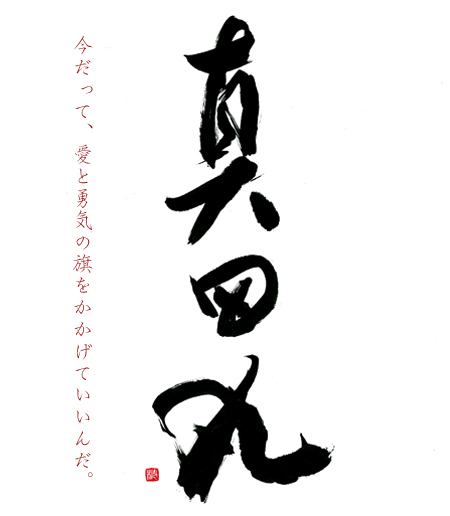 真田丸
今だって、愛と勇気の旗をかかげていいんだ。